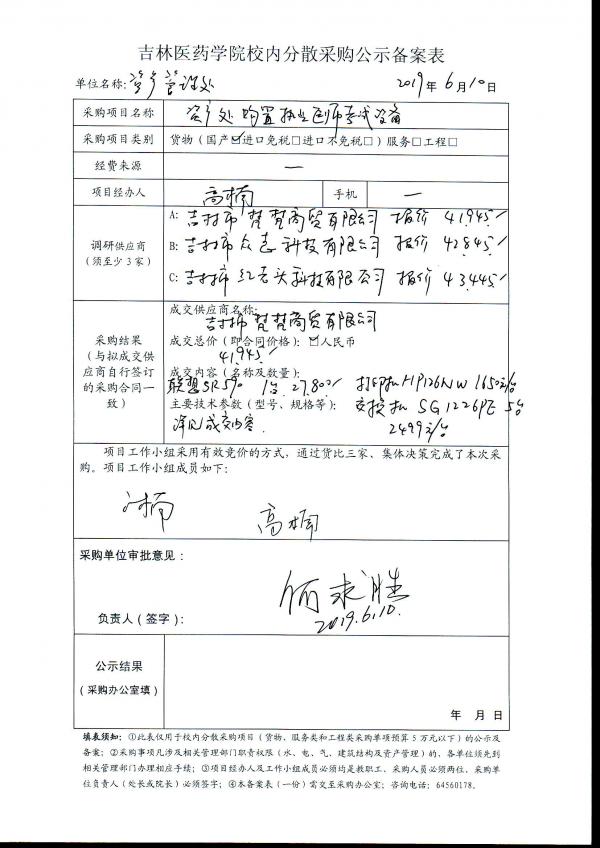 吉林医药学院校内分散采购公示备案表
单位名称:资产管理处 2019年6月10日
采购项目名称 资产处购置执业医师考试设备
采购项目类别 货物（国产☑进口免税□进口不免税□）服务□工程□
经费来源 —
项目经办人 高楠 手机 —
调研供应商
（须至少3家）
A: 吉林市梵梵商贸有限公司 报价 41945/
B: 吉林市众志科技有限公司 报价 42845/
C: 吉林市红石头科技有限公司 报价 43445/
采购结果
（与拟成交供
应商自行签订
的采购合同一
致）
成交供应商名称:
吉林市梵梵商贸有限公司
成交总价（即合同价格）: ☑人民币
41945/
成交内容（名称及数量）:
联想SR590 1台 27800/ 打印机HP126NW 1650元/台
主要技术参数（型号、规格等）: 交换机 SG1226PE 5台
详见成交内容 2499元/台
项目工作小组采用有效竞价的方式，通过货比三家、集体决策完成了本次采
购。项目工作小组成员如下:
高楠
采购单位审批意见:
负责人（签字）:
2019.6.10.
公示结果
（采购办公室填）
年 月 日
填表须知: ①此表仅用于校内分散采购项目（货物、服务类和工程类采购单项预算5万元以下）的公示及
备案; ②采购事项凡涉及相关管理部门职责权限（水、电、气、建筑结构及资产管理）的、各单位须先到
相关管理部门办理相应手续; ③项目经办人及工作小组成员必须均是教职工、采购人员必须两位、采购单
位负责人（处长或院长）必须签字; ④本备案表（一份）需交至采购办公室; 咨询电话: 64560178。